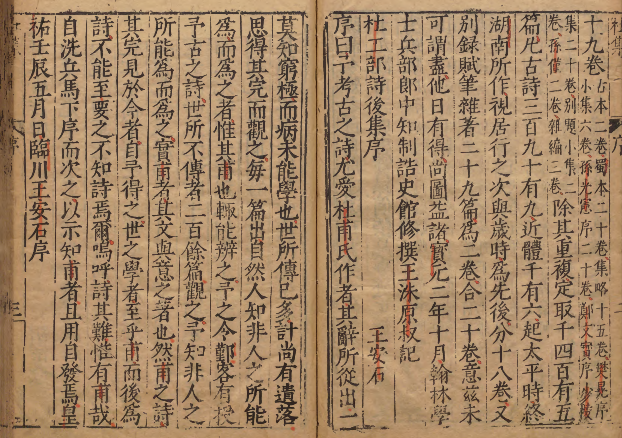 十九卷 古本二卷蜀本二十卷集略十五卷樊晃序
小集六卷孫光憲序二十卷鄭文寶序少陵
集二十卷別題小集二
卷孫僅一卷雜編三卷
除其重複定取千四百有五
篇凡古詩三百九十有九近體千有六起太平時終
湖南所作視居行之次與歲時為先後分十八卷又
別錄賦筆雜著二十九篇為二卷合二十卷意茲未
可謂盡他日有得尚圖益諸寶元二年十月翰林學
士兵部郎中知制誥史館修撰王洙原叔記
杜工部詩後集序
王安石
序曰予考古之詩尤愛杜甫氏作者其辭所從出一
莫知窮極而病未能學也世所傳已多計尚有遺落
思得其完而觀之每一篇出自然人知非人之所能
為而為之者惟其甫也輒能辨之予之令鄞客有授
予古之詩世所不傳者二百餘篇觀之予知非人之
所能為而為之實甫者其文與意之著也然甫之詩
其完見於今者自予得之世之學者至乎甫而後為
詩不能至要之不知詩焉爾嗚呼詩其難惟有甫哉
自洗兵馬下序而次之以示知甫者且用自發焉皇
祐壬辰五月日臨川王安石序